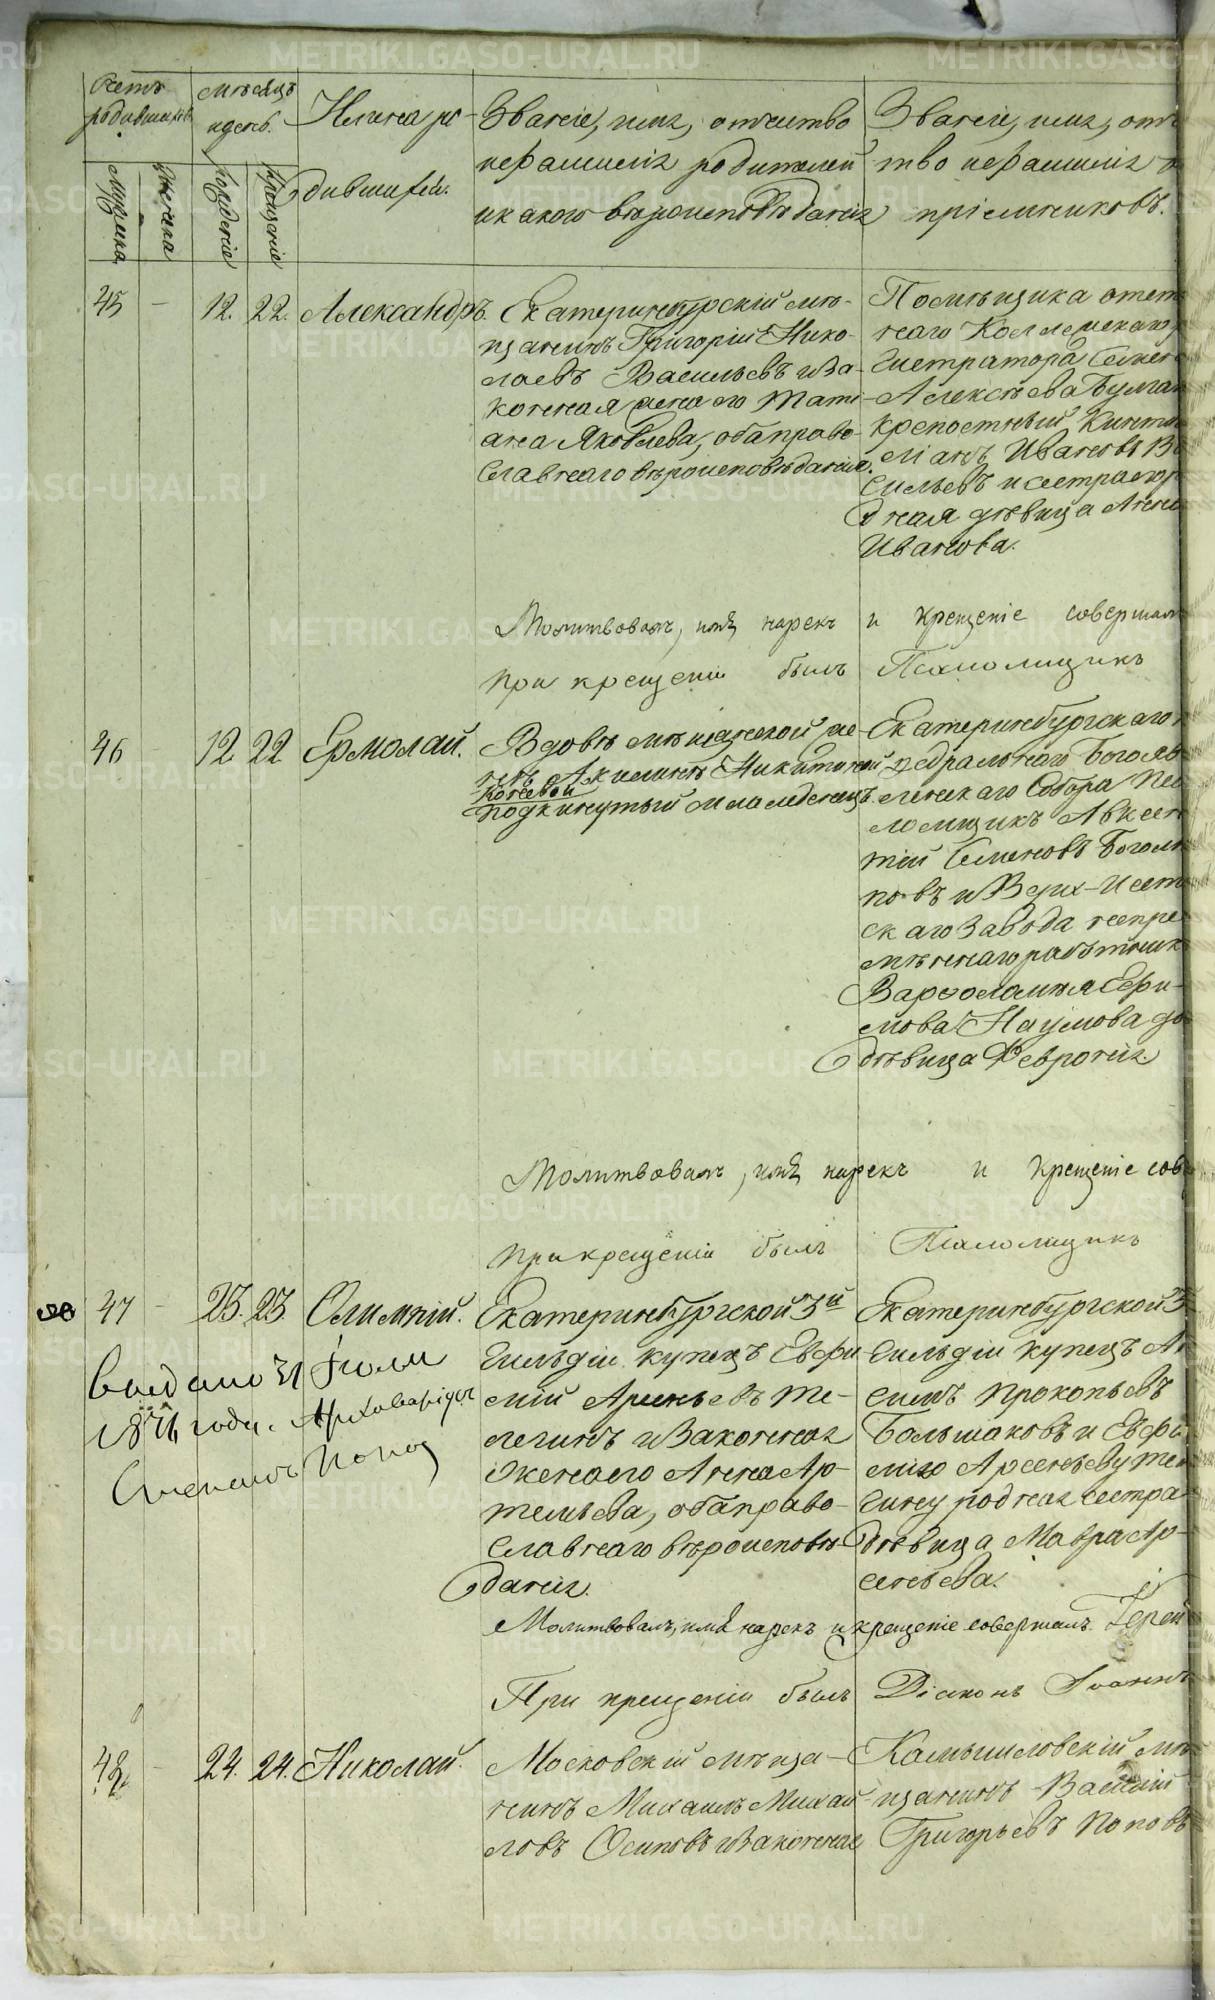 Счетъ родившихся. Мѣсяцъ и день. Имена ро-
дившихся.
Мужеска
Женска
Рожденіе
Крещеніе
Званіе, имя, отчество
и фамилія родителей
и какого вѣроисповѣданія
Званіе, имя, отчес
тво и фамилія
пріемниковъ.
45 — 12. 22. Александръ.
Екатеринбургскій мѣ-
щанинъ Григорій Нико-
лаевъ Васильевъ и за-
конная жена его Тати-
ана Яковлева, оба право-
славнаго вѣроисповѣданія.
Помѣщика отст
наго Коллежскаго р
гистратора Семена
Алексѣева
крепостный
Ивановъ Ва
сильевъ и сестра его р
дная дѣвица Анна
Иванова.
Молитвовалъ, имя нарекъ и крещеніе совершалъ
при крещеніи былъ Псаломщикъ
46 — 12 22 Ермолай.
Вдовѣ мѣщанской же-
нѣ Акилинѣ Никитиной
Коневой
подкинутый младенецъ.
Екатеринбургскаго
ѳедральнаго Богояв
ленскаго Собора Пса
ломщикъ Авксен
тій Семеновъ Боголѣ
повъ и Верх-Исет
скаго завода непре
мѣннаго работник
Варѳоломѣя Ефи-
мова Наумова до
дѣвица Февронія.
Молитвовалъ, имя нарекъ и крещеніе сов
при крещеніи былъ Псаломщикъ
47 — 23. 23. Олимпій.
Екатеринбургской 3й
гильдіи купецъ Евфи
мій Арсеньевъ Те-
легинъ и законная
жена его Анна Ар-
темьева, оба право-
славнаго вѣроисповѣ-
данія.
Екатеринбургской 3
гильдіи купецъ А
симъ Прокопьевъ
Большаковъ и Евфи
мію Арсеньеву Теле
гину родная сестра
дѣвица Мавра Ар-
сеньева.
31 Іюля
года.
Степанъ Попов
Молитвовалъ, имя нарекъ и крещеніе совершалъ Іерей
При крещеніи былъ Діаконъ Іоаннъ
48 — 24. 24. Николай.
Московскій мѣща-
нинъ Михаилъ Михай-
ловъ Осиповъ и законная
Камышловскій мѣ
щанинъ Василій
Григорьевъ Поповъ
METRIKI.GASO-URAL.RU